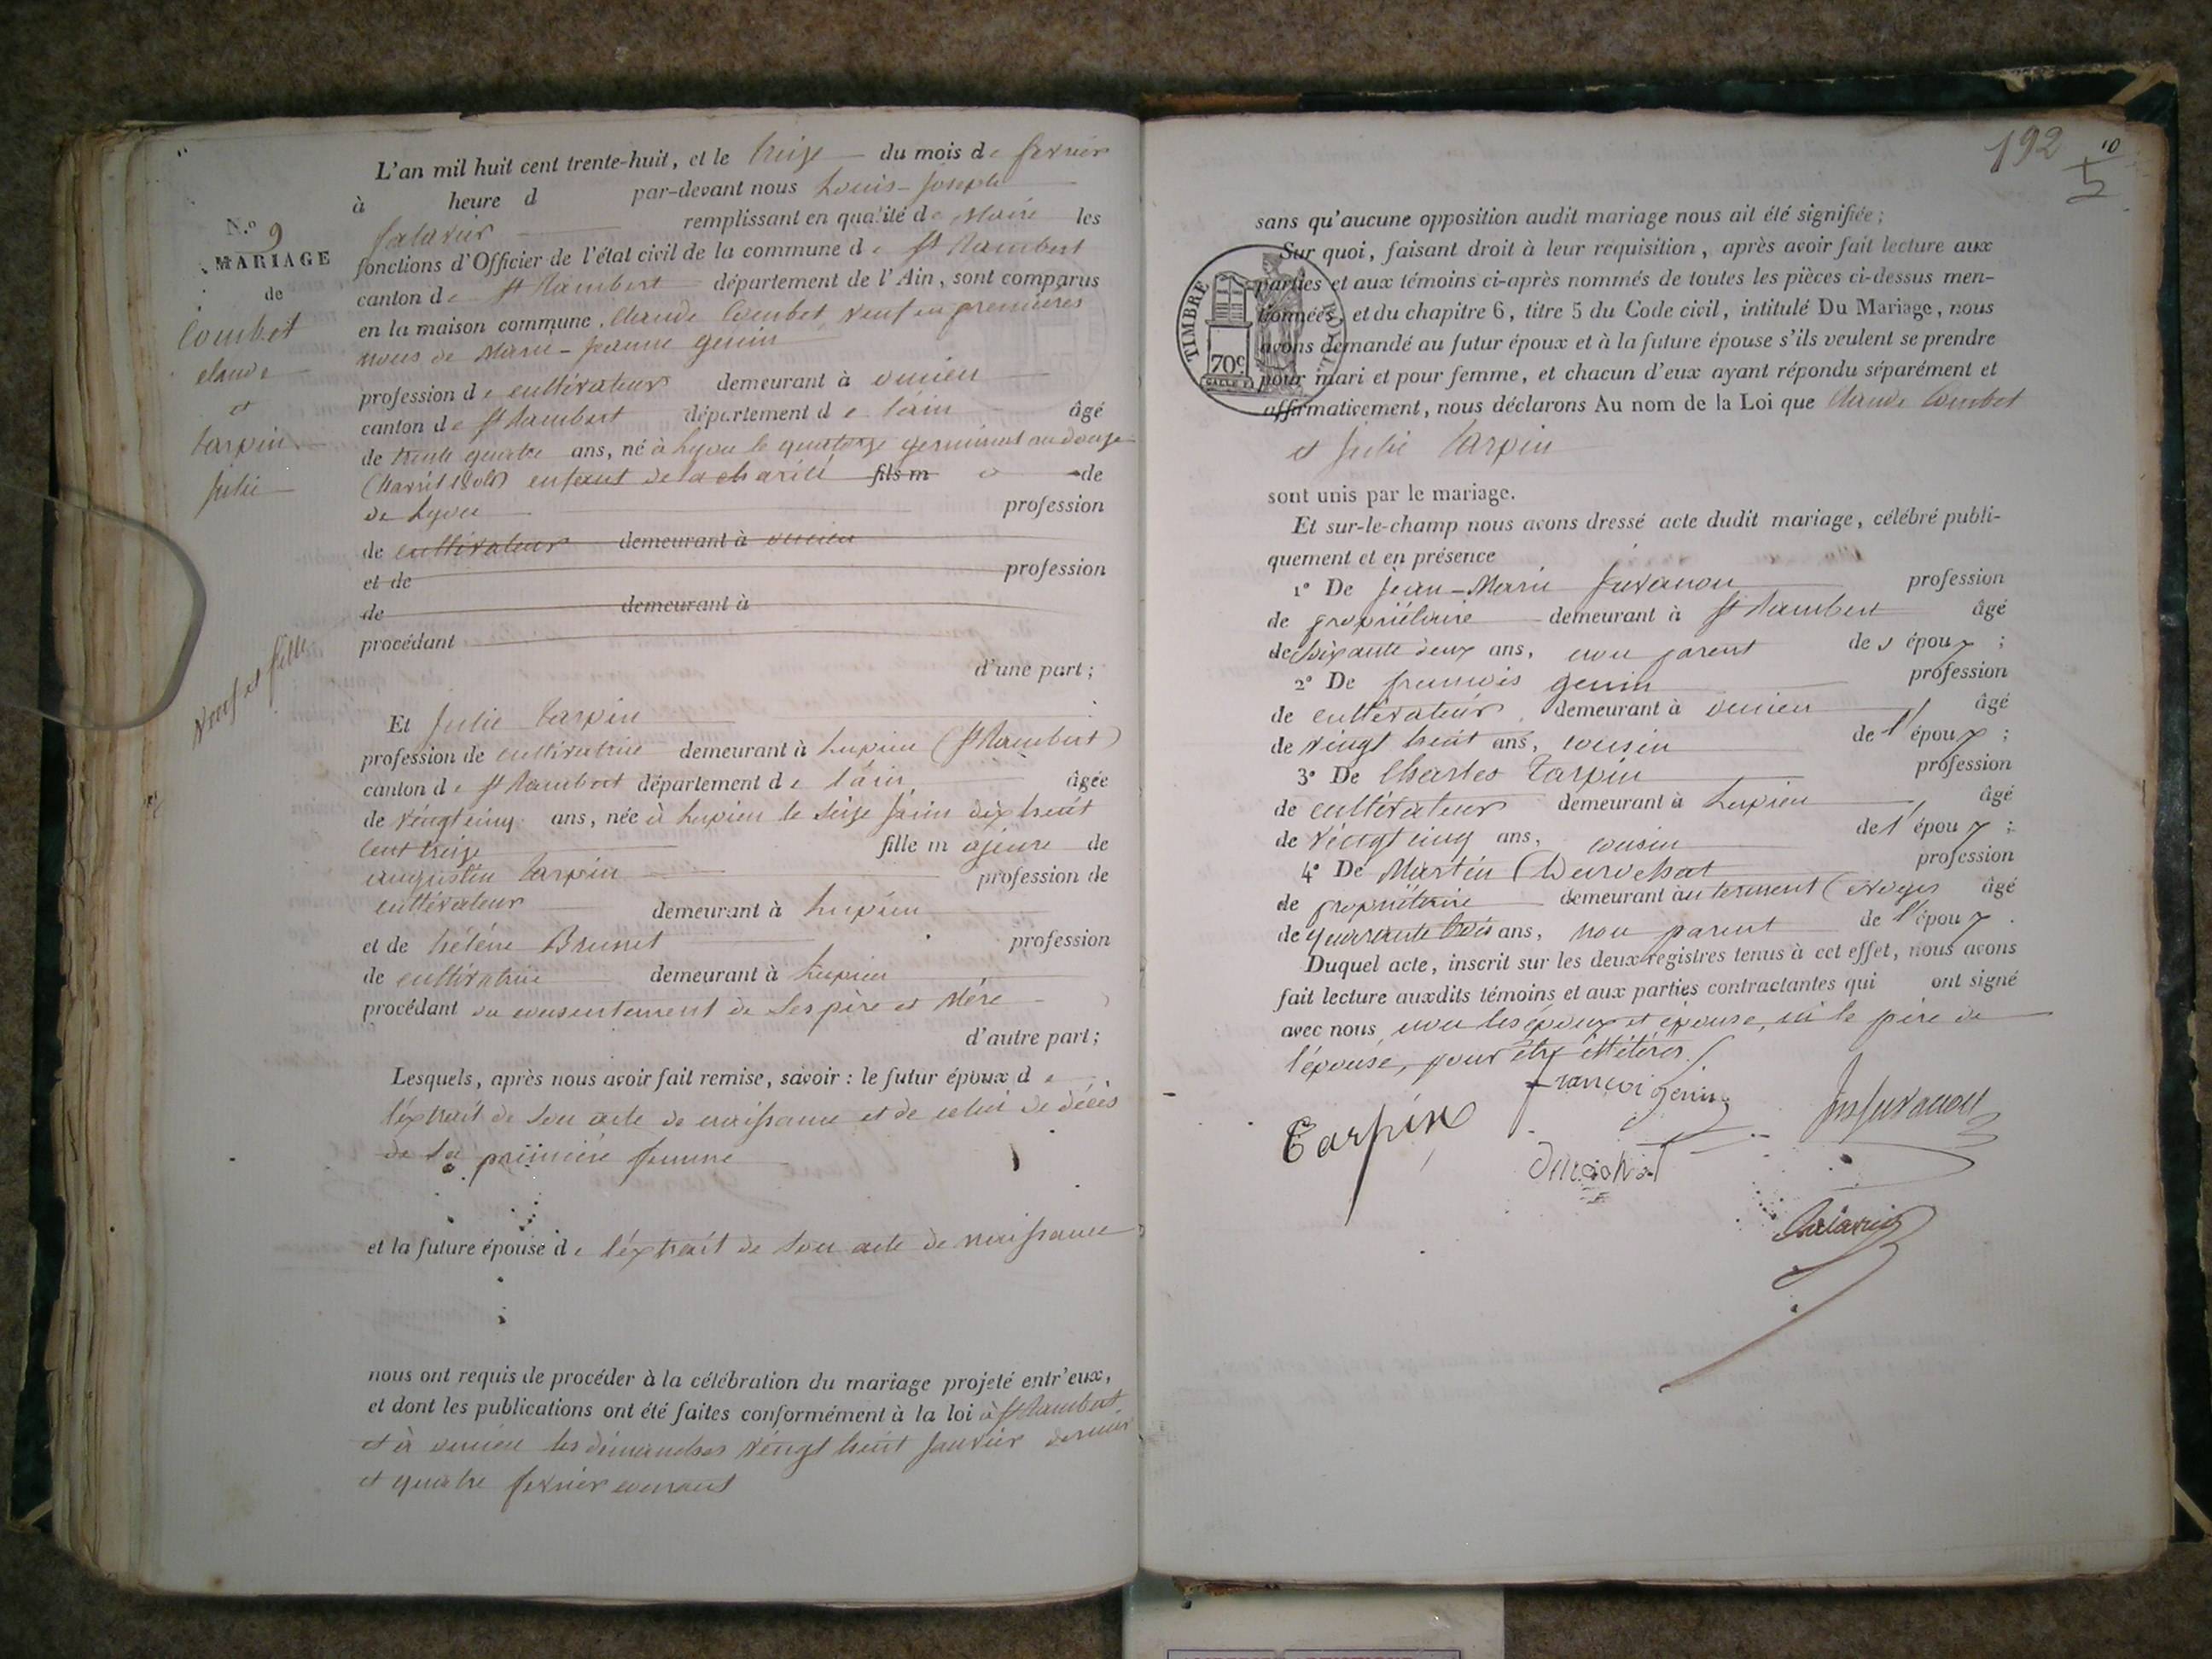 N.º 9
MARIAGE
de
Combet
claude
et
tarpin
Julie
Veuf et fille
L'an mil huit cent trente-huit, et le treize du mois de fevrier
à heure d par-devant nous Louis-Joseph
remplissant en qualité de Maire les
fonctions d'Officier de l'état civil de la commune de St Rambert
canton de St Rambert département de l'Ain, sont comparus
en la maison commune, Claude Combet, veuf en premières
noces de Marie-Jeanne genin
profession de cultivateur demeurant à oncieu
canton de St Rambert département de l'ain âgé
de trente quatre ans, né à Lyon le quatorze germinal an douze
(4 avril 1804) enfant de la charité fils m de
de Lyon profession
de cultivateur demeurant à oncieu
et de profession
de demeurant à
procédant
d'une part;
Et Julie tarpin
profession de cultivatrice demeurant à Lupieu (St Rambert)
canton de St Rambert département de l'ain âgée
de vingt cinq ans, née à Lupieu le seize juin dix huit
cent treize fille majeure de
augustin tarpin profession de
cultivateur demeurant à Lupieu
et de hélène Brunet profession
de cultivatrice demeurant à Lupieu
procédant du consentement de ses père et Mère
d'autre part;
Lesquels, après nous avoir fait remise, savoir : le futur époux de
l'extrait de son acte de naissance et de celui de décès
de sa première femme
et la future épouse de l'extrait de son acte de naissance
nous ont requis de procéder à la célébration du mariage projeté entr'eux,
et dont les publications ont été faites conformément à la loi à St Rambert
et à oncieu les dimanches vingt huit janvier dernier
et quatre fevrier courant
192
10
5
TIMBRE ROYAL
70c
sans qu'aucune opposition audit mariage nous ait été signifiée;
Sur quoi, faisant droit à leur réquisition, après avoir fait lecture aux
parties et aux témoins ci-après nommés de toutes les pièces ci-dessus men-
tionnées, et du chapitre 6, titre 5 du Code civil, intitulé Du Mariage, nous
avons demandé au futur époux et à la future épouse s'ils veulent se prendre
pour mari et pour femme, et chacun d'eux ayant répondu séparément et
affirmativement, nous déclarons Au nom de la Loi que Claude Combet
et Julie tarpin
sont unis par le mariage.
Et sur-le-champ nous avons dressé acte dudit mariage, célébré publi-
quement et en présence
1º De Jean-Marie Juvanon profession
de propriétaire demeurant à St Rambert âgé
de soixante deux ans, non parent des époux;
2º De francois genin profession
de cultivateur demeurant à oncieu, âgé
de vingt huit ans, cousin de l'époux;
3º De Charles tarpin profession
de cultivateur demeurant à Lupieu, âgé
de vingt cinq ans, cousin de l'épou;
4º De Martin profession
de propriétaire demeurant au âgé
de quarante trois ans, non parent de l'époux.
Duquel acte, inscrit sur les deux registres tenus à cet effet, nous avons
fait lecture auxdits témoins et aux parties contractantes qui ont signé
avec nous non les époux et épouse, ni le père de
l'épouse, pour être illétérés.
francoi genin
Tarpin
Juvanon